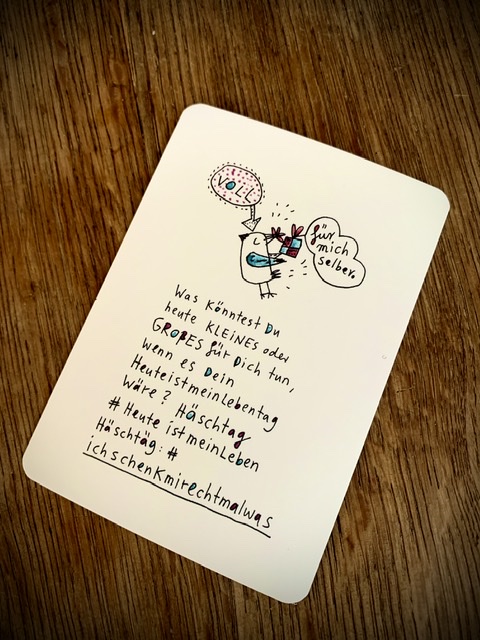 VOLL
für
mich
selber.
Was könntest Du
heute KLEINES oder
GROßES für Dich tun,
wenn es Dein
Heuteistmeinlebentag
wäre? Häschtag
# Heute istmeinLeben
Häschtäg: #
ichschenkmirechtmalwas